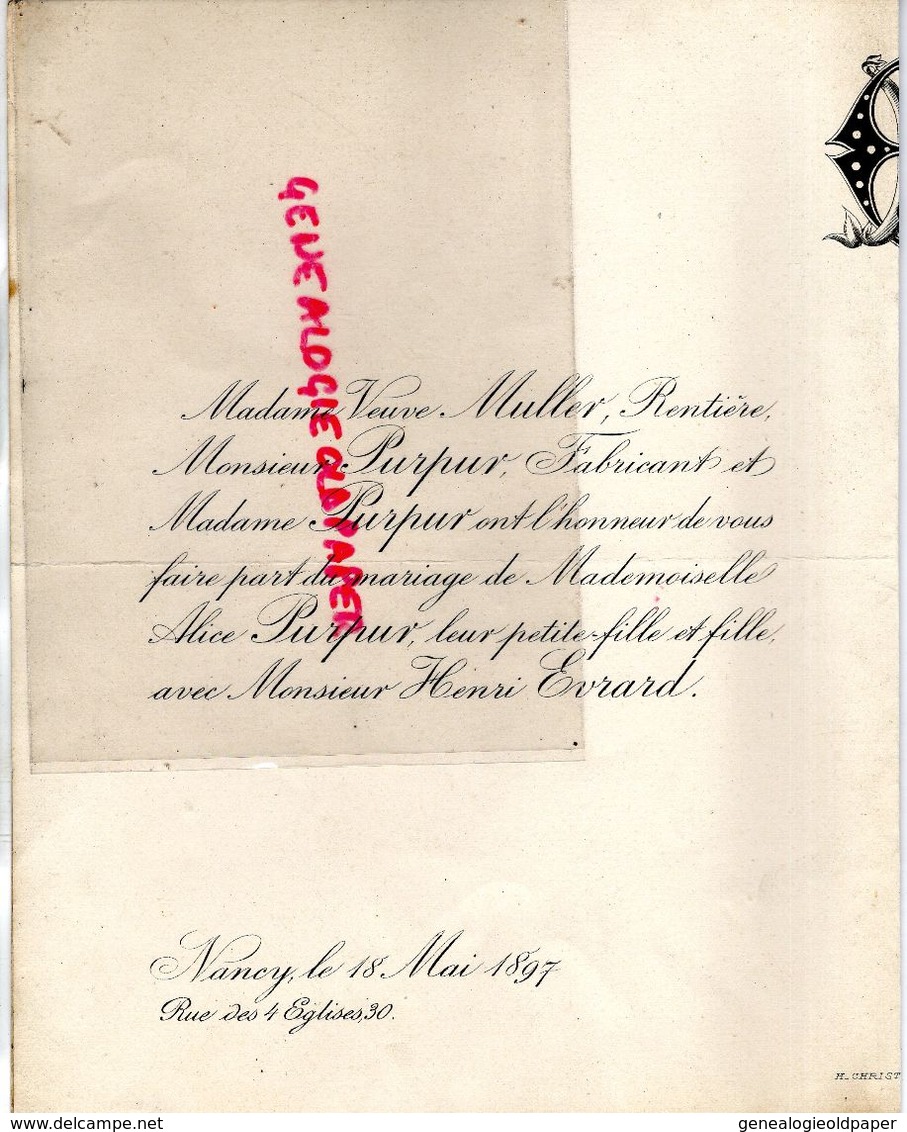 GENEALOGIE OLDPAPER
Madame Veuve Muller, Rentière,
Monsieur Purpur, Fabricant et
Madame Purpur ont l'honneur de vous
faire part du mariage de Mademoiselle
Alice Purpur, leur petite-fille et fille,
avec Monsieur Henri Evrard.
Nancy, le 18 Mai 1897
Rue des 4 Eglises, 30.
H. CHRIST
www.delcampe.net
genealogieoldpaper